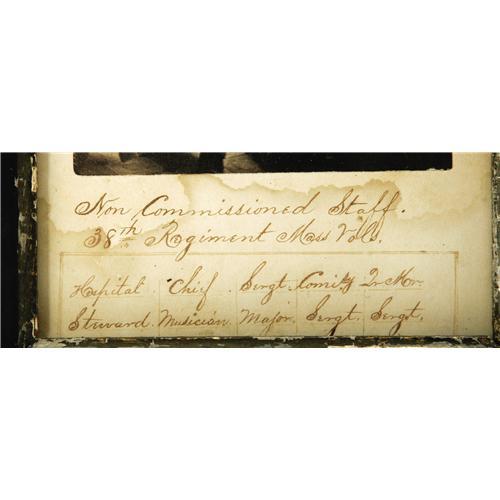 Non Commissioned Staff.
38th Regiment Mass Vols.
Hospital Chief Sergt. Comity Qr Mr.
Steward. Musician Major. Sergt. Sergt.